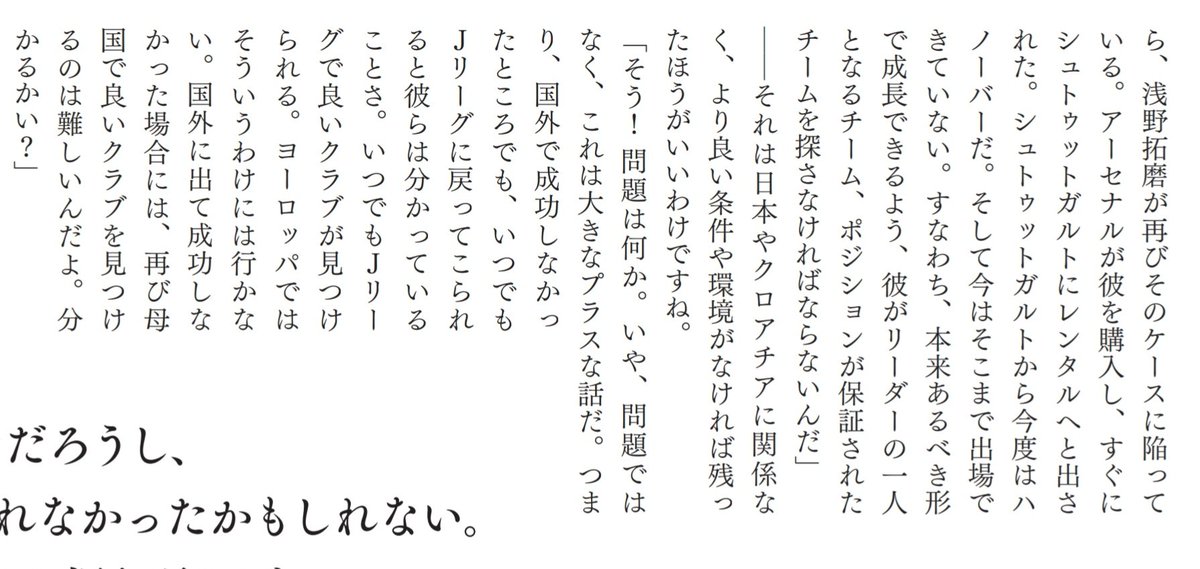 ら、浅野拓磨が再びそのケースに陥って
いる。アーセナルが彼を購入し、すぐに
シュトゥットガルトにレンタルへと出さ
れた。シュトゥットガルトから今度はハ
ノーバーだ。そして今はそこまで出場で
きていない。すなわち、本来あるべき形
で成長できるよう、彼がリーダーの一人
となるチーム、ポジションが保証された
チームを探さなければならないんだ」
――それは日本やクロアチアに関係な
く、より良い条件や環境がなければ残っ
たほうがいいわけですね。
「そう！ 問題は何か。いや、問題では
なく、これは大きなプラスな話だ。つま
り、国外で成功しなかっ
たところでも、いつでも
Jリーグに戻ってこられ
ると彼らは分かっている
ことさ。いつでもJリー
グで良いクラブが見つけ
られる。ヨーロッパでは
そういうわけには行かな
い。国外に出て成功しな
かった場合には、再び母
国で良いクラブを見つけ
るのは難しいんだよ。分
かるかい？」
だろうし、
れなかったかもしれない。